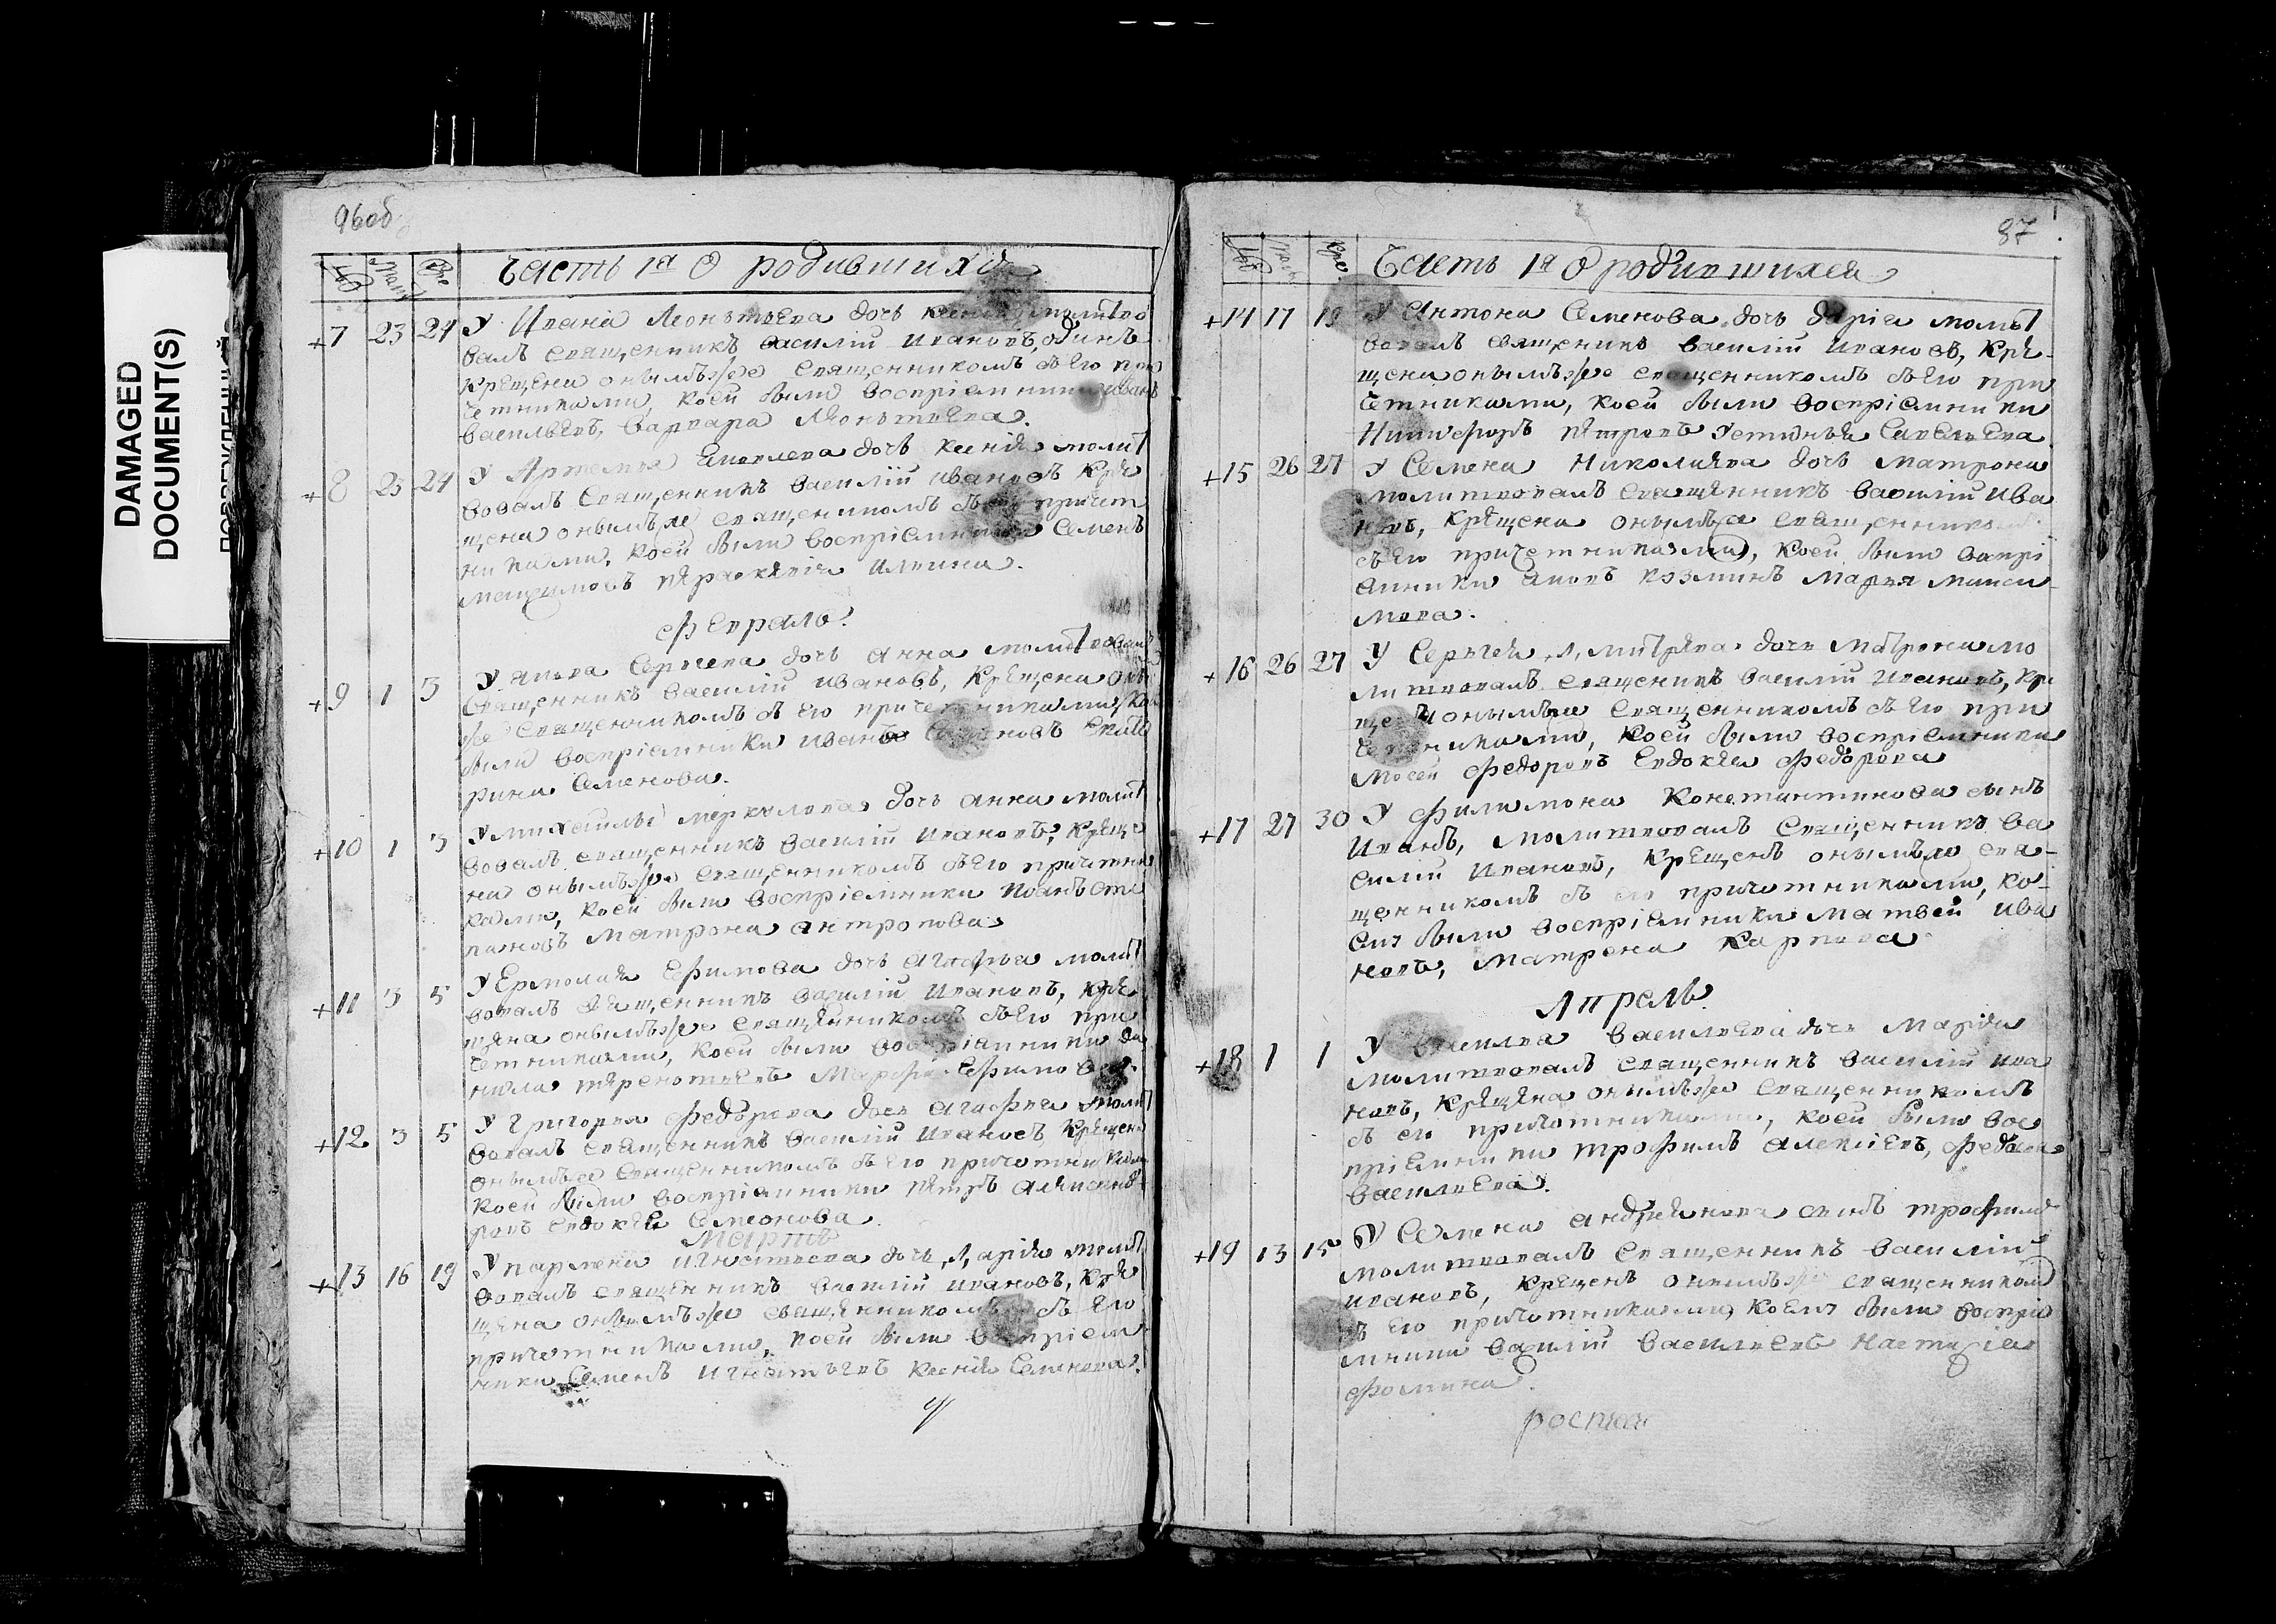 DAMAGED
DOCUMENT(S)
96об
Часть 1я О родившихся
+7 23 24 У Ивана Леонтьева дочь Ксения молитво
валъ священникъ Василій Ивановъ,
крещена онымъ же священникомъ съ его при
четниками, коей были воспріемники Иванъ
Васильевъ, Варвара Леонтьева.
+8 23 24 У Артемья дочь Ксенія молит
вовалъ священникъ Василій Ивановъ кре
щена онымъ же священникомъ съ его причет
никами, коей были воспріемники Семенъ
Максимовъ Парасковья Ильина.
Февраль.
+9 1 3 У Якова Сергеева дочь Анна молитвовалъ
священникъ Василій Ивановъ, крещена оны
же священникомъ съ его причетниками, кое
были воспріемники Иванъ Кате
рина Семенова.
+10 1 3 У Михайлы Меркулова дочь Анна молит
вовалъ священникъ Василій Ивановъ, креще
на онымъ же священникомъ съ его причетни
ками, коей были воспріемники Иванъ Сте
пановъ Матрона Антропова
+11 3 5 У Ермолая Ефимова дочь Агафья молит
вовалъ священникъ Василій Ивановъ, кре
щена онымъ же священникомъ съ его при
четниками, коей были воспріемники Да
нила Терентьевъ Марфа Ефимова.
+12 3 5 У Григорья Федорова дочь Агафья молит
вовалъ священникъ Василій Ивановъ крещена
онымъ же священникомъ съ его причотника
коей были воспріемники Петръ Александ
ровъ Евдокея Семеонова.
Мартъ
+13 16 19 У Пармена Игнатьева дочь Дарія молит
вовалъ священникъ Василій Ивановъ, кре
щена онымъ же священникомъ съ его
причотниками, коей были воспріем
ники Семенъ Игнатьевъ Ксенія Семенова.
87
Часть 1я О родившихся
+14 17 19 У Антона Семенова дочь Дарія молит
вовалъ священникъ Василій Ивановъ, кре-
щена онымъ же священникомъ съ его при
четниками, коей были воспріемники
Никифоръ Петровъ Устинья Савельева
+15 26 27 У Семена Николаева дочь Матрона
молитвовалъ священникъ Василій Ива
новъ, крещена онымъ же священникомъ
съ его причетниками, коей были воспрі
емники Яковъ Козминъ Марья Макси
мова.
+16 26 27 У Сергея Дмитрева дочь Матрона мо
литвовалъ священникъ Василій Ивановъ, кре
щена онымъ же священникомъ съ его при
четниками, коей были воспріемники
Мосей Федоровъ Евдокея Федорова
+17 27 30 У Филимона Константинова сынъ
Иванъ, молитвовалъ священникъ Ва
силій Ивановъ, крещенъ онымъ же свя-
щенникомъ съ его причотниками, ко-
ему были воспріемники Матвей Ива
новъ, Матрена Карпова
Апрель
+18 1 1 У Василья Васильева дочь Марія
молитвовалъ священникъ Василій Ива
новъ, крещена онымъ же священникомъ
съ его причотниками, коей были вос
пріемники Трофимъ Алексіевъ, Федосья
Васильева.
+19 13 15 У Семена Андреянова сынъ Трофимъ
молитвовалъ священникъ Василій
Ивановъ, крещенъ онымъ же священником
съ его причотниками, коему были воспріе
мники Василій Васильевъ Настасія
Фомина.